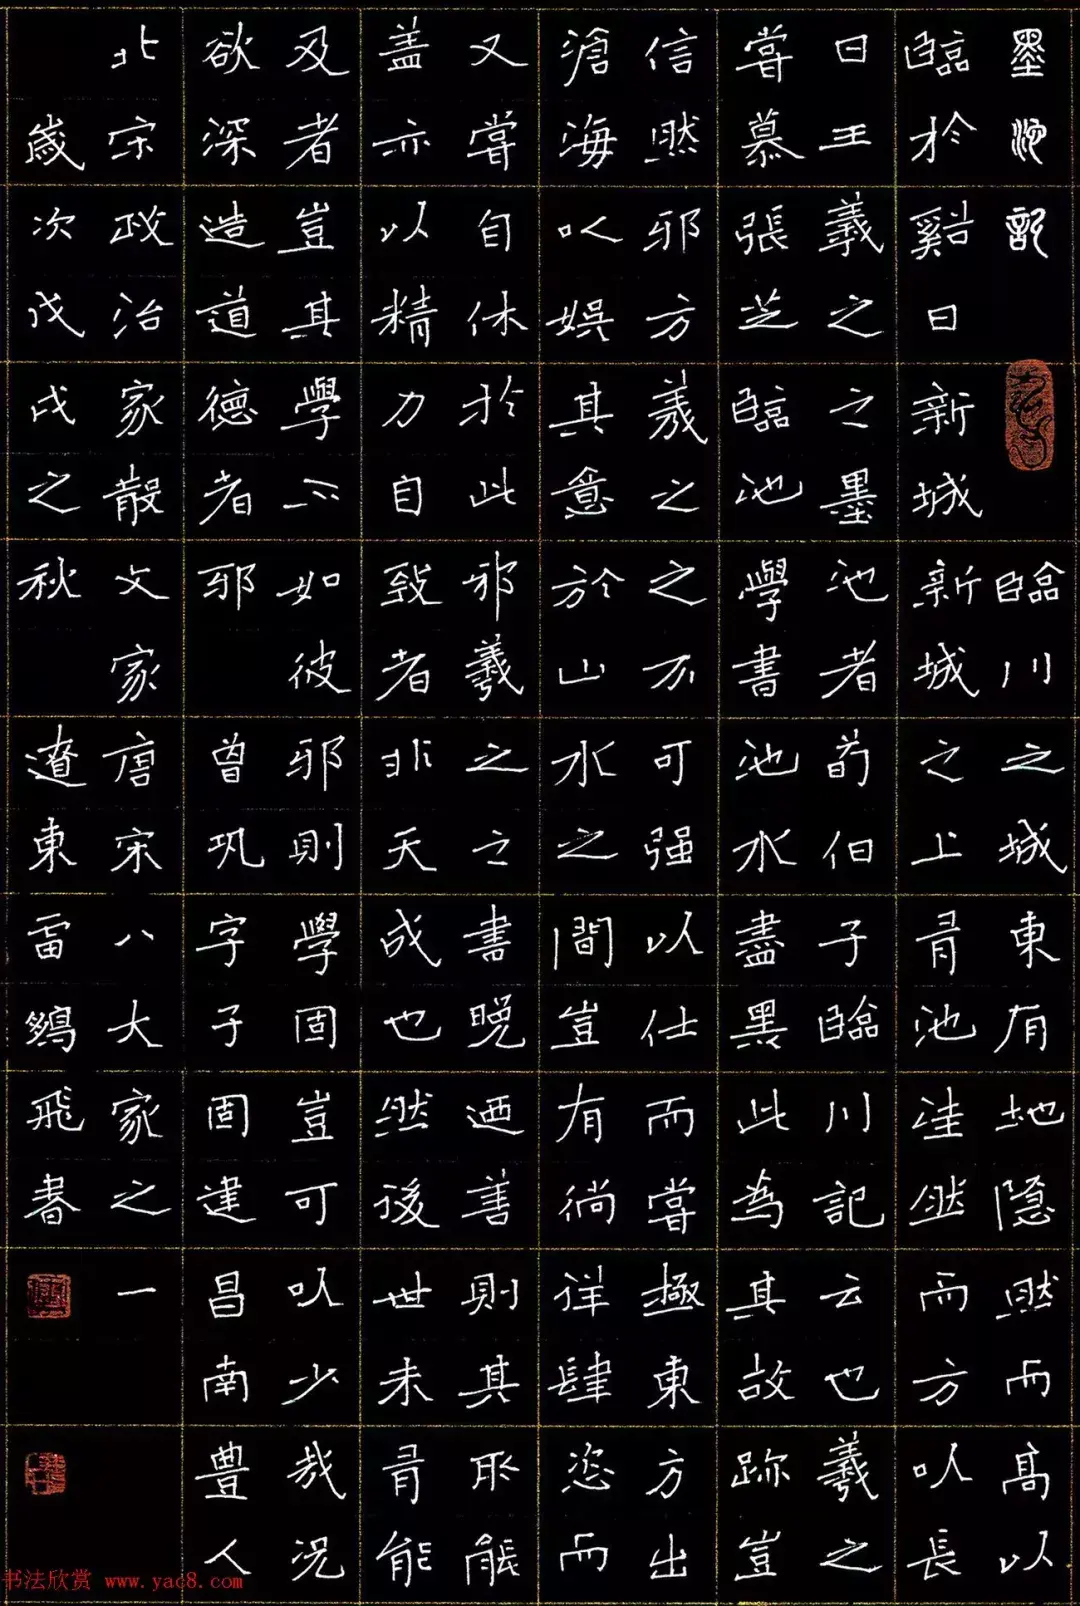 墨池記 臨川之城東有地隱然而高以
臨於谿曰新城新城之上有池洼然而方以長
曰王羲之之墨池者荀伯子臨川記云也羲之
嘗慕張芝臨池學書池水盡黑此為其故跡豈
信然邪方羲之之不可强以仕而嘗極東方出
滄海以娛其意於山水之間豈有徜徉肆恣而
又嘗自休於此邪羲之之書晚迺善則其所能
蓋亦以精力自致者非天成也然後世未有能
及者豈其學不如彼邪則學固豈可以少哉況
欲深造道德者邪 曾巩字子固建昌南豐人
北宋政治家散文家唐宋八大家之一
歲次戊戌之秋 遼東雷飛書
书法欣赏 www.yac8.com